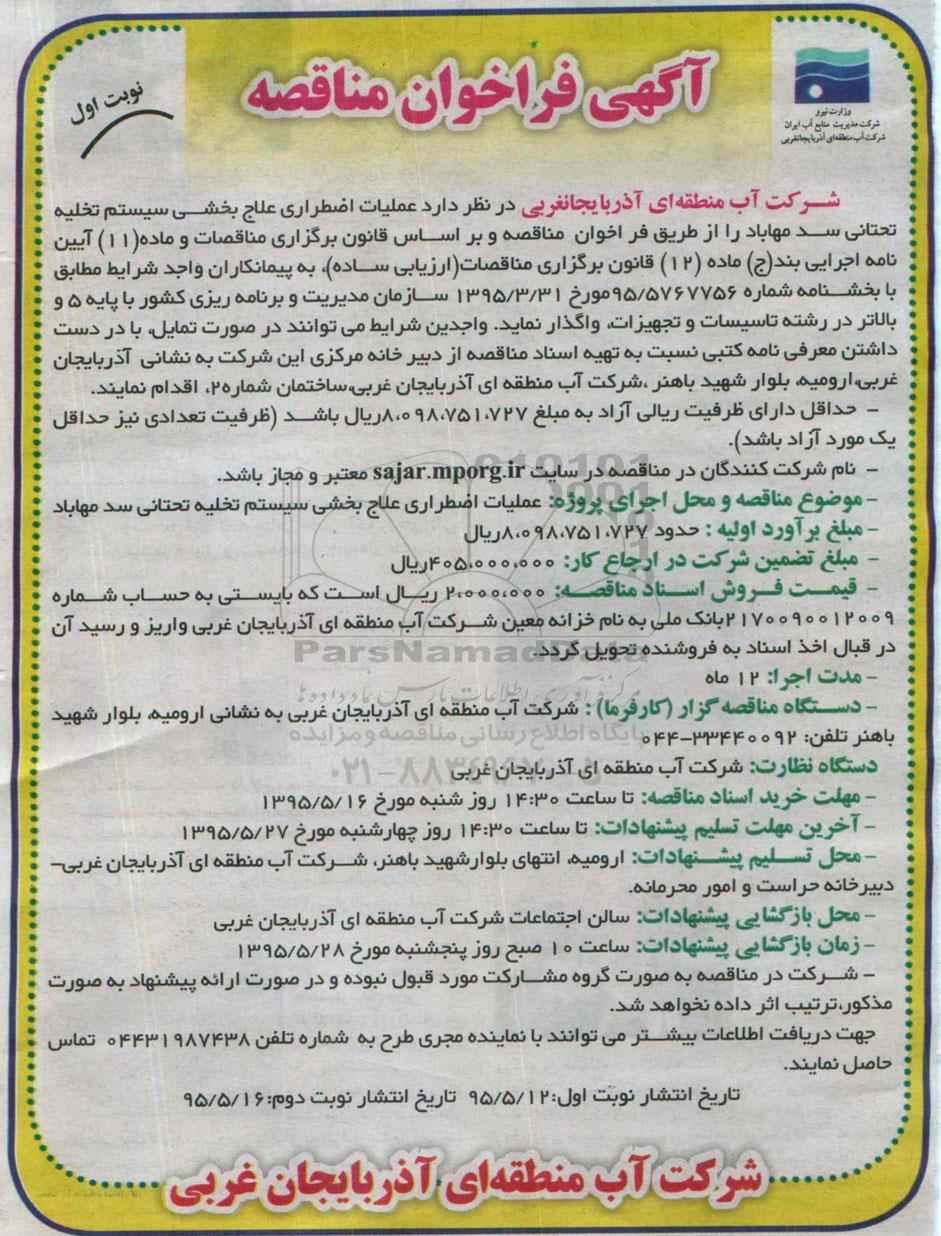 آگهی فراخوان مناقصه
نوبت اول
وزارت نیرو
شرکت مدیریت منابع آب ایران
شرکت آب منطقه‌ای آذربایجانغربی
شرکت آب منطقه‌ای آذربایجانغربی در نظر دارد عملیات اضطراری علاج بخشی سیستم تخلیه
تحتانی سد مهاباد را از طریق فر اخوان مناقصه و بر اساس قانون برگزاری مناقصات و ماده(۱۱) آیین
نامه اجرایی بند(ج) ماده (۱۲) قانون برگزاری مناقصات(ارزیابی ساده)، به پیمانکاران واجد شرایط مطابق
با بخشنامه شماره ۹۵/۵۷۶۷۷۵۶مورخ ۱۳۹۵/۳/۳۱ سازمان مدیریت و برنامه ریزی کشور با پایه ۵ و
بالاتر در رشته تاسیسات و تجهیزات، واگذار نماید. واجدین شرایط می توانند در صورت تمایل، با در دست
داشتن معرفی نامه کتبی نسبت به تهیه اسناد مناقصه از دبیر خانه مرکزی این شرکت به نشانی آذربایجان
غربی،ارومیه، بلوار شهید باهنر ،شرکت آب منطقه ای آذربایجان غربی،ساختمان شماره۲، اقدام نمایند.
- حداقل دارای ظرفیت ریالی آزاد به مبلغ ۸،۰۹۸،۷۵۱،۷۲۷ریال باشد (ظرفیت تعدادی نیز حداقل
یک مورد آزاد باشد).
- نام شرکت کنندگان در مناقصه در سایت sajar.mporg.ir معتبر و مجاز باشد.
- موضوع مناقصه و محل اجرای پروژه: عملیات اضطراری علاج بخشی سیستم تخلیه تحتانی سد مهاباد
- مبلغ برآورد اولیه : حدود ۸،۰۹۸،۷۵۱،۷۲۷ریال
- مبلغ تضمین شرکت در ارجاع کار: ۴۰۵،۰۰۰،۰۰۰ریال
- قیمت فروش اسناد مناقصه: ۲،۰۰۰،۰۰۰ ریال است که بایستی به حساب شماره
۲۱۷۰۰۹۰۰۱۲۰۰۹بانک ملی به نام خزانه معین شرکت آب منطقه ای آذربایجان غربی واریز و رسید آن
در قبال اخذ اسناد به فروشنده تحویل گردد.
- مدت اجرا: ۱۲ ماه
- دستگاه مناقصه گزار (کارفرما) : شرکت آب منطقه ای آذربایجان غربی به نشانی ارومیه، بلوار شهید
باهنر تلفن: ۳۳۴۴۰۰۹۲-۰۴۴
دستگاه نظارت: شرکت آب منطقه ای آذربایجان غربی
- مهلت خرید اسناد مناقصه: تا ساعت ۱۴:۳۰ روز شنبه مورخ ۱۳۹۵/۵/۱۶
- آخرین مهلت تسلیم پیشنهادات: تا ساعت ۱۴:۳۰ روز چهارشنبه مورخ ۱۳۹۵/۵/۲۷
- محل تسلیم پیشنهادات: ارومیه، انتهای بلوارشهید باهنر، شرکت آب منطقه ای آذربایجان غربی-
دبیرخانه حراست و امور محرمانه.
- محل بازگشایی پیشنهادات: سالن اجتماعات شرکت آب منطقه ای آذربایجان غربی
- زمان بازگشایی پیشنهادات: ساعت ۱۰ صبح روز پنجشنبه مورخ ۱۳۹۵/۵/۲۸
- شرکت در مناقصه به صورت گروه مشارکت مورد قبول نبوده و در صورت ارائه پیشنهاد به صورت
مذکور،ترتیب اثر داده نخواهد شد.
جهت دریافت اطلاعات بیشتر می توانند با نماینده مجری طرح به شماره تلفن ۰۴۴۳۱۹۸۷۴۳۸ تماس
حاصل نمایند.
تاریخ انتشار نوبت اول:۹۵/۵/۱۲ تاریخ انتشار نوبت دوم:۹۵/۵/۱۶
شرکت آب منطقه‌ای آذربایجان غربی
ParsNamadData
پایگاه اطلاع رسانی مناقصه و مزایده